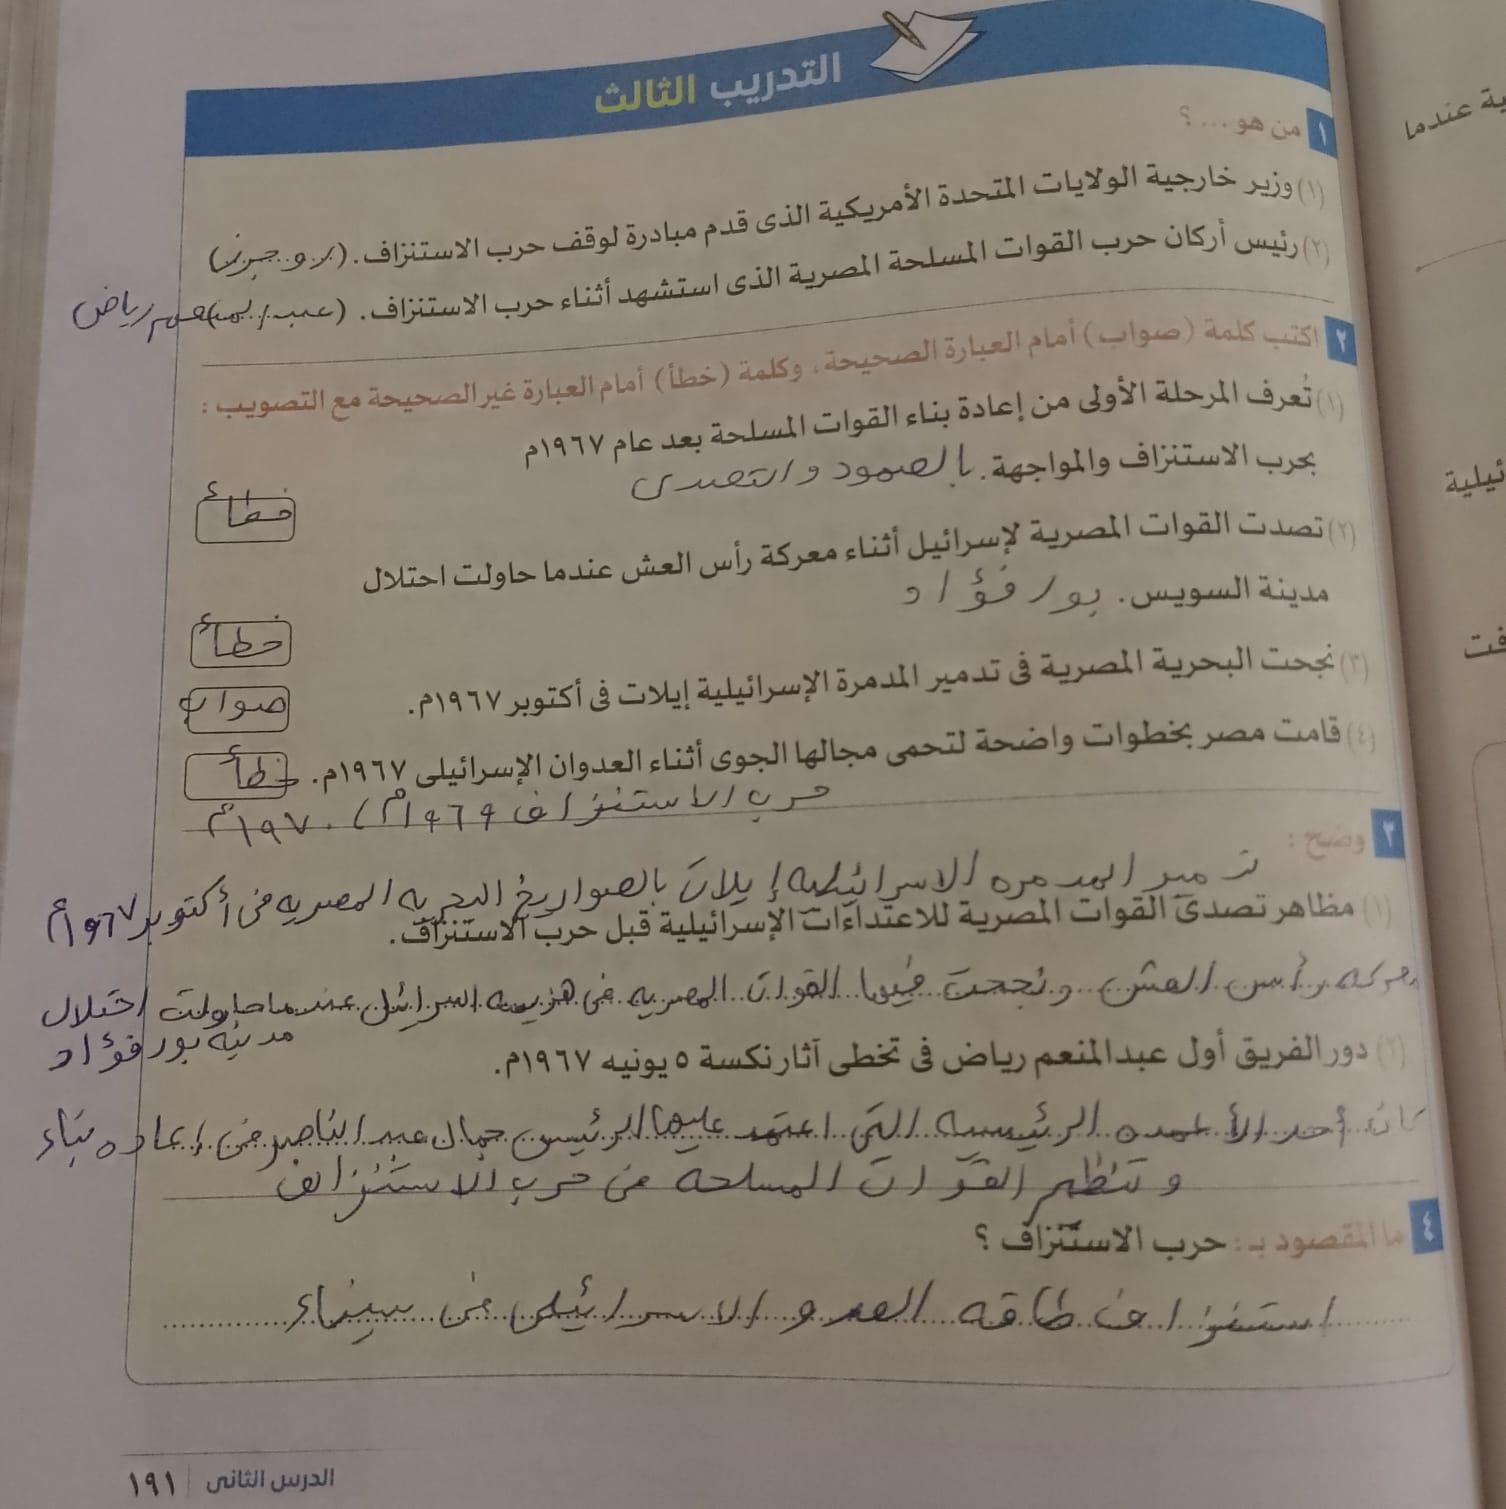 التدريب الثالث
١ من هو ... ؟
(١) وزير خارجية الولايات المتحدة الأمريكية الذى قدم مبادرة لوقف حرب الاستنزاف. (روجرز)
(٢) رئيس أركان حرب القوات المسلحة المصرية الذى استشهد أثناء حرب الاستنزاف. (عبد المنعم رياض
٢ اكتب كلمة (صواب) أمام العبارة الصحيحة، وكلمة (خطأ) أمام العبارة غير الصحيحة مع التصويب :
(١) تُعرف المرحلة الأولى من إعادة بناء القوات المسلحة بعد عام ١٩٦٧م
بحرب الاستنزاف والمواجهة. بالصمود والتصدى
خطأ
(٢) تصدت القوات المصرية لإسرائيل أثناء معركة رأس العش عندما حاولت احتلال
مدينة السويس. بور فؤاد
خطأ
(٣) نجحت البحرية المصرية فى تدمير المدمرة الإسرائيلية إيلات فى أكتوبر ١٩٦٧م.
صواب
(٤) قامت مصر بخطوات واضحة لتحمى مجالها الجوى أثناء العدوان الإسرائيلى ١٩٦٧م.
خطأ
حرب الاستنزاف ١٩٦٩م / ١٩٧٠م
٣ وضح :
تدمير المدمره الاسرائيليه إيلات بالصواريخ البحريه المصريه فى أكتوبر ١٩٦٧م
(١) مظاهر تصدى القوات المصرية للاعتداءات الإسرائيلية قبل حرب الاستنزاف.
معركه رأس العش ونجحت فيها القوات المصريه فى هزيمه اسرائيل عندما حاولت احتلال
مدينة بور فؤاد
(٢) دور الفريق أول عبدالمنعم رياض فى تخطى آثار نكسة ٥ يونيه ١٩٦٧م.
كان أحد الأعمده الرئيسيه التى اعتمد عليها الرئيس جمال عبد الناصر فى إعاده بناء
وتنظيم القوات المسلحه فى حرب الاستنزاف
٤ ما المقصود بـ : حرب الاستنزاف ؟
استنزاف طاقه العدو الاسرائيلى فى سيناء
الدرس الثانى ١٩١
ية عندما
ئيلية
فت